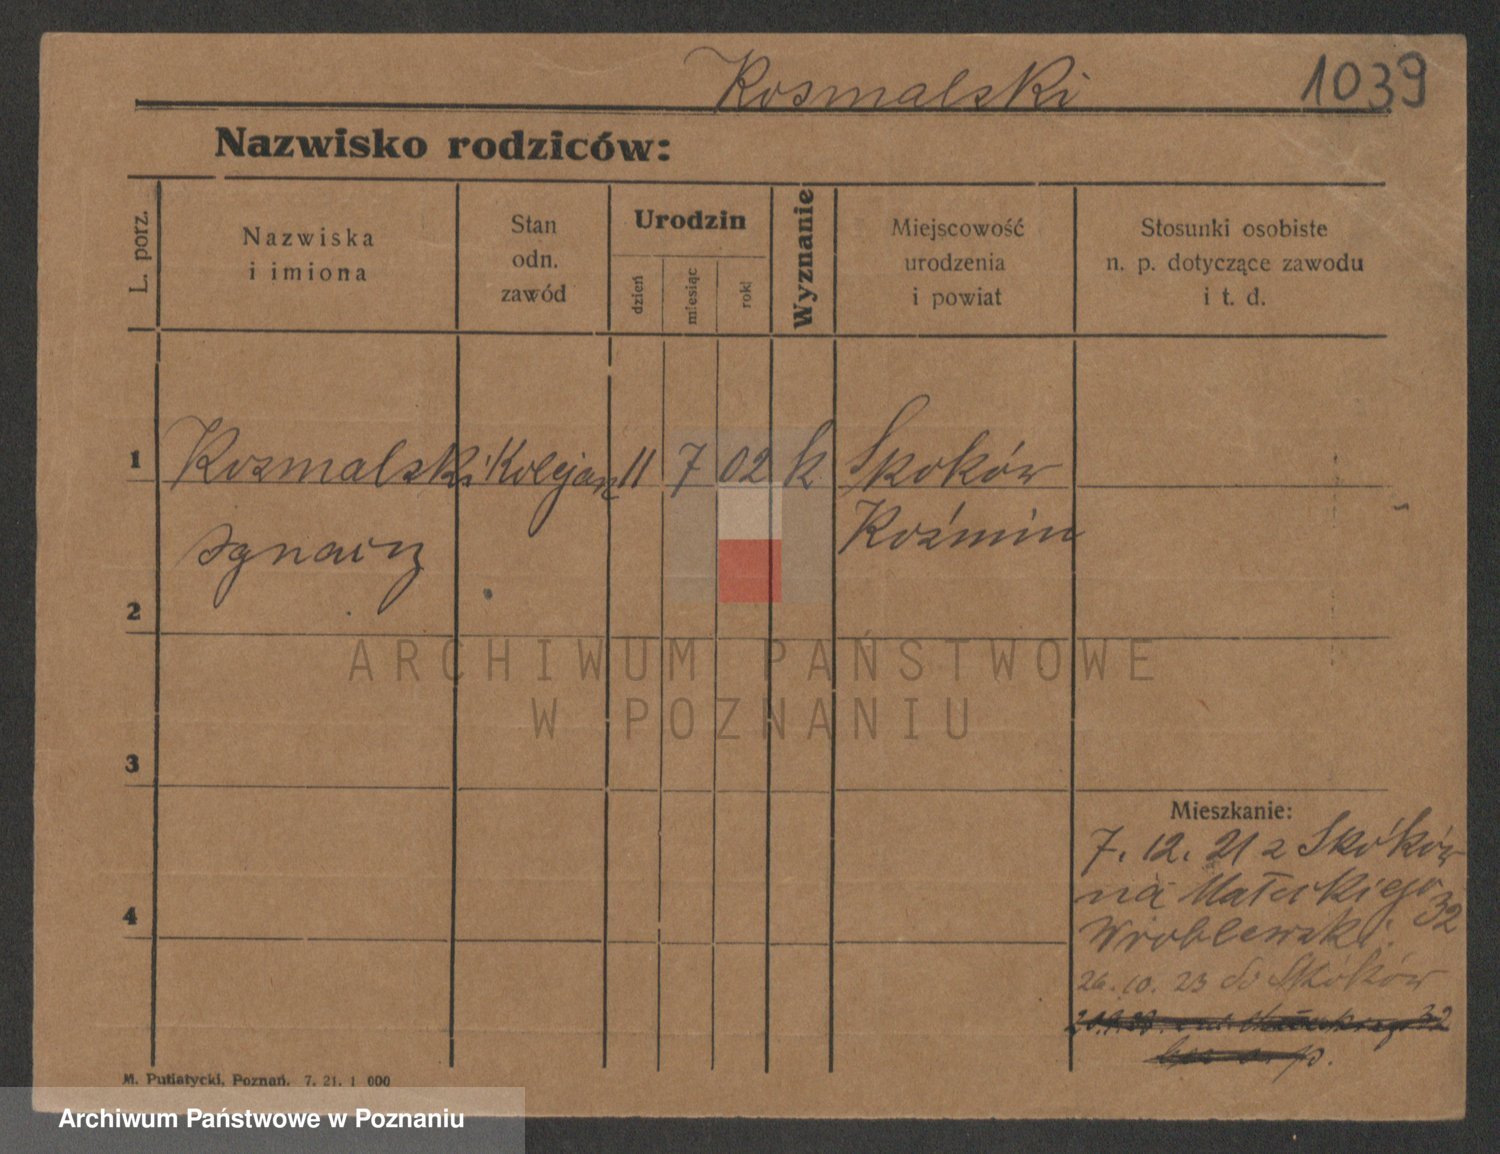 Kosmalski 1039
Nazwisko rodziców:
L. porz.
Nazwiska
i imiona
Stan
odn.
zawód
Urodzin
dzień
miesiąc
rok
Wyznanie
Miejscowość
urodzenia
i powiat
Stosunki osobiste
n. p. dotyczące zawodu
i t. d.
1 Kosmalski Kolejarz 11 7 02 k Skoków
Koźmin
Ignacy
2
ARCHIWUM PAŃSTWOWE
W POZNANIU
3
Mieszkanie:
7. 12. 21 z Skóków
na Małeckiego 32
4
Wróblewski
26. 10. 23 do Skóków
M. Putiatycki, Poznań. 7. 21. 1 000
Archiwum Państwowe w Poznaniu